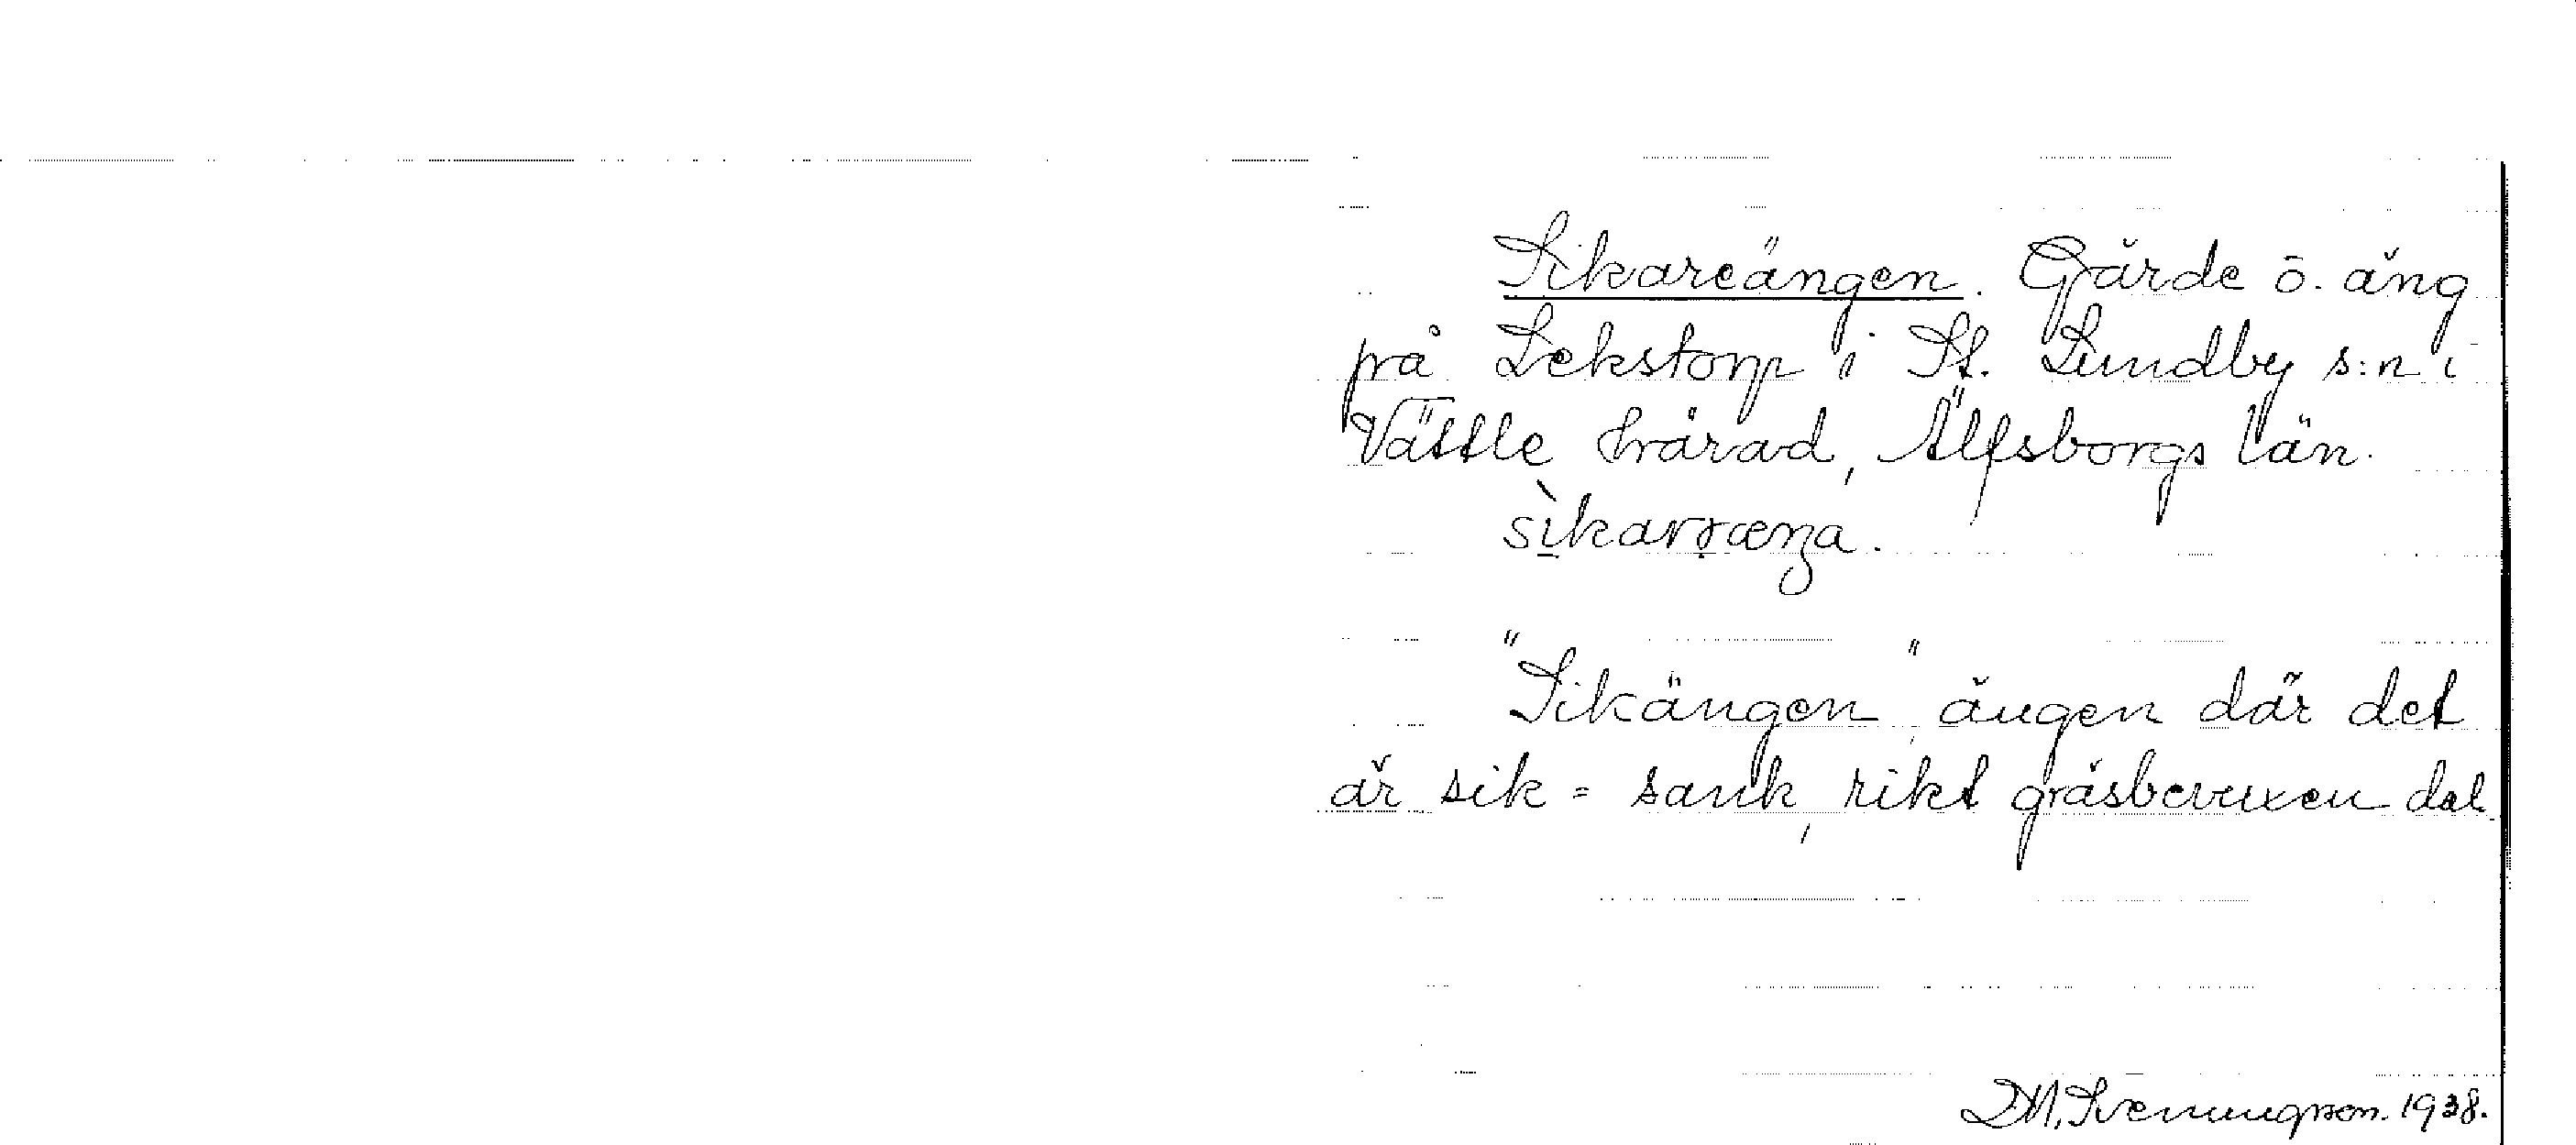 Sikareängen. Gärde o. äng
på Lekstorp i St. Lundby s:n i
Vättle härad, Älfsborgs län.

"Sikängen", ängen där det
är sik = sank, rikt gräsbevuxen dal.
D.M. Svenungsson. 1938.